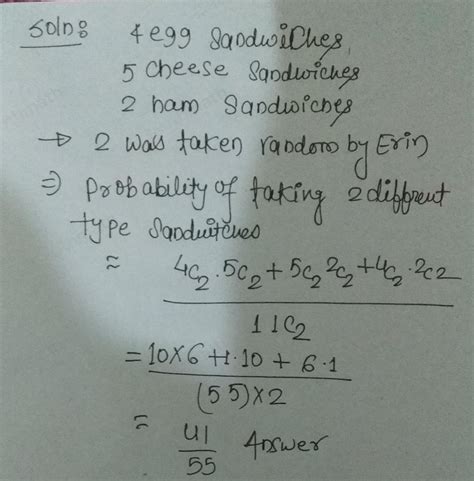 Soln:  4 egg Sandwiches,
5 Cheese Sandwiches
2 ham Sandwiches
→ 2 was taken random by Erin
⇒ Probability of taking 2 different
type Sandwitches
= 4C2 . 5C2 + 5C2 2C2 + 4C2 . 2C2
11C2
= 10×6 + 1·10 + 6·1
(55)×2
= 41
55 Answer